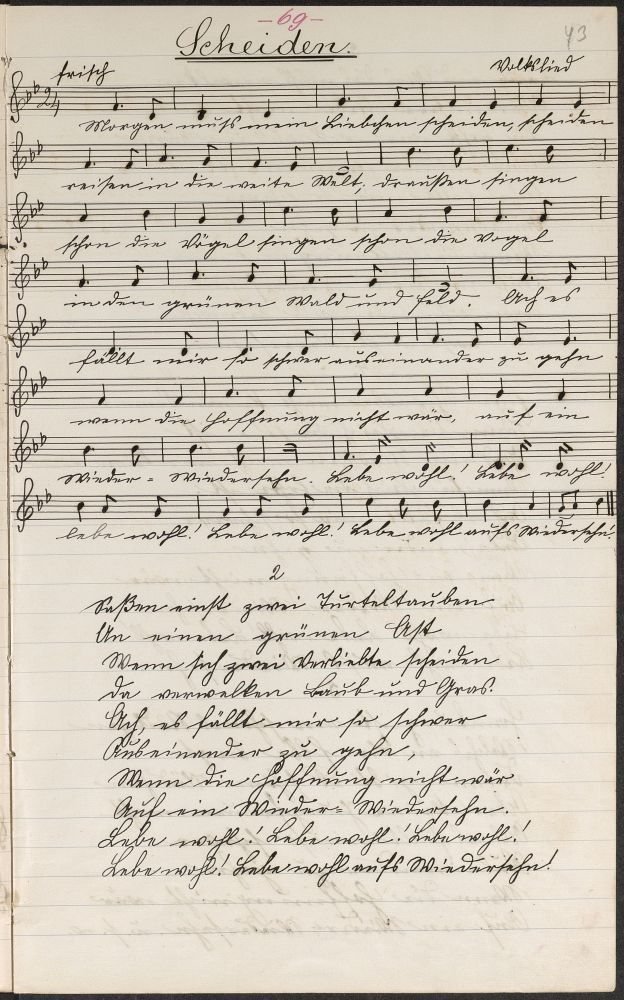 -69-
43
Scheiden.
frisch
Volkslied
2/4
Morgen muß mein Liebchen scheiden, scheiden
reisen in die weite Welt, draußen singen
schon die Vögel singen schon die Vögel
in den grünen Wald und Feld. Ach es
fällt mir so schwer auseinander zu gehn
wenn die Hoffnung nicht wär, auf ein
Wieder = Wiedersehn. Lebe wohl! Lebe wohl!
lebe wohl! Lebe wohl! Lebe wohl aufs Wiedersehn!
2
Saßen einst zwei Turteltauben
An einen grünen Ast
Wenn sich zwei Verliebte scheiden
da verwelken Laub und Gras.
Ach, es fällt mir so schwer
Auseinander zu gehn,
Wenn die Hoffnung nicht wär
Auf ein Wieder= Wiedersehn.
Lebe wohl! Lebe wohl! Lebe wohl!
Lebe wohl! Lebe wohl aufs Wiedersehn!